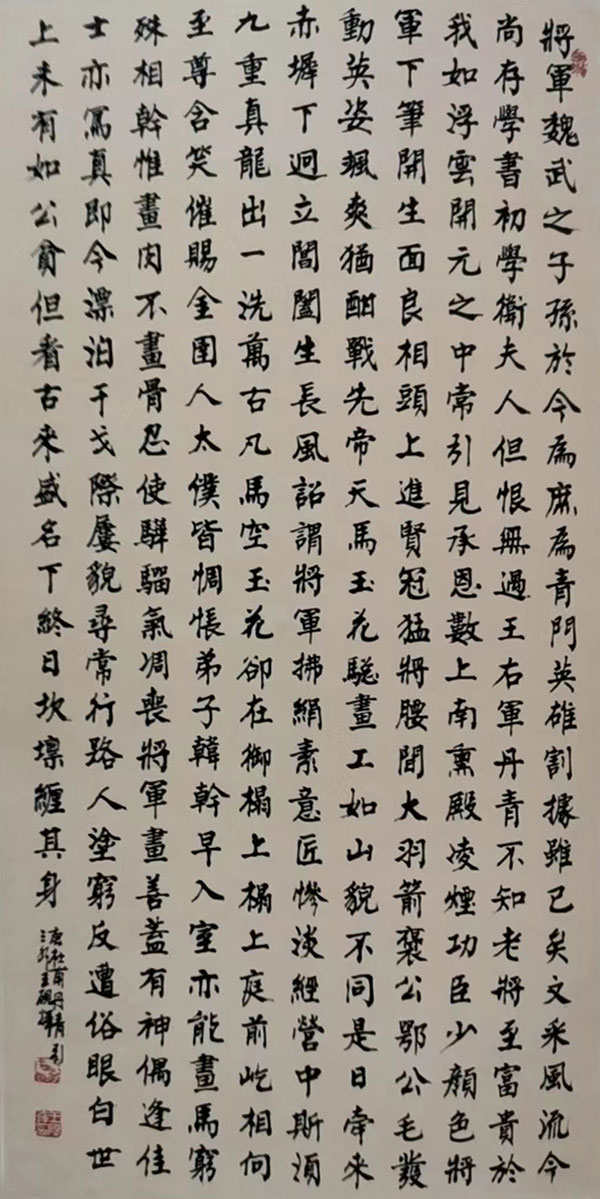 將軍魏武之子孫於今為庶為青門英雄割據雖已矣文采風流今
尚存學書初學衛夫人但恨無過王右軍丹青不知老將至富貴於
我如浮雲開元之中常引見承恩數上南熏殿凌煙功臣少顏色將
軍下筆開生面良相頭上進賢冠猛將腰間大羽箭褒公鄂公毛髮
動英姿颯爽猶酣戰先帝天馬玉花驄畫工如山貌不同是日牽來
赤墀下迥立閶闔生長風詔謂將軍拂絹素意匠慘淡經營中斯須
九重真龍出一洗萬古凡馬空玉花卻在御榻上榻上庭前屹相向
至尊含笑催賜金圉人太僕皆惆悵弟子韓幹早入室亦能畫馬窮
殊相幹惟畫肉不畫骨忍使驊騮氣凋喪將軍畫善蓋有神偶逢佳
士亦寫真即今漂泊干戈際屢貌尋常行路人塗窮反遭俗眼白世
上未有如公貧但看古來盛名下終日坎壈纏其身
唐杜甫丹青引